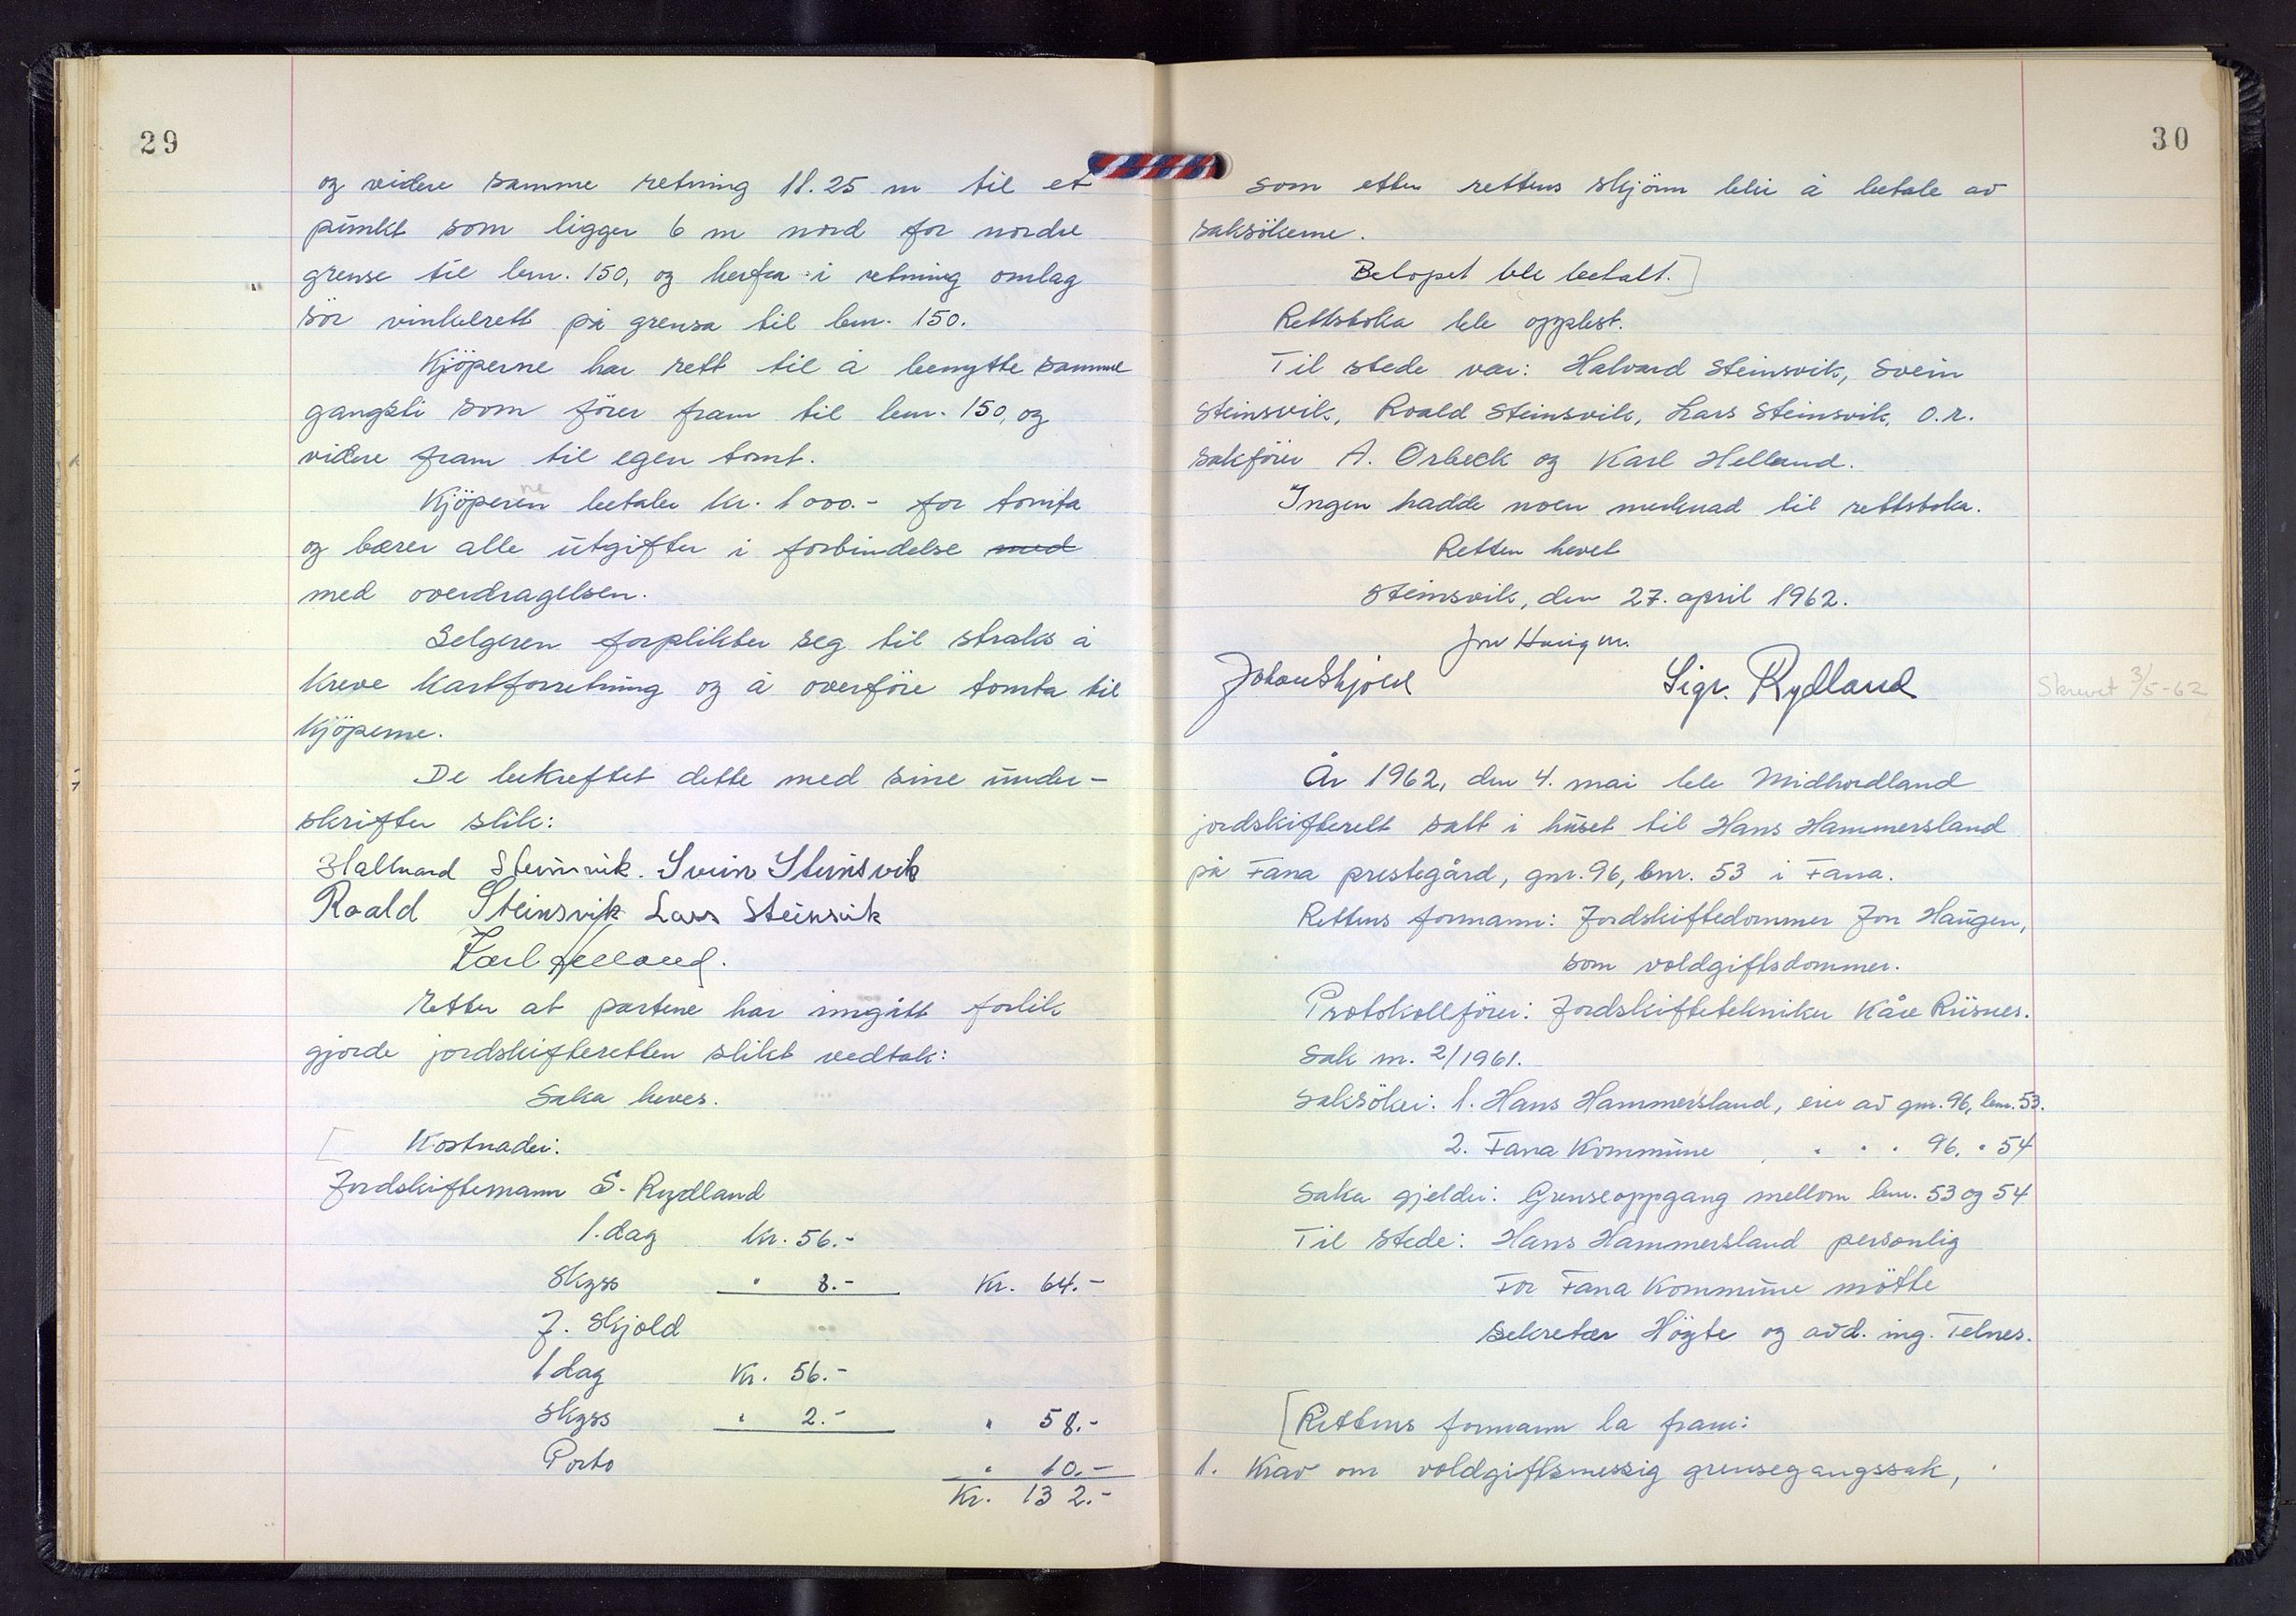 29
og videre samme retning 18.25 m til et
punkt som ligger 6 m nord for nordre
grense til bnr. 150, og herfra i retning omlag
sör vinkelrett på grensa til bnr. 150.
Kjöperne har rett til å benytte samme
gangsti som förer fram til bnr. 150, og
videre fram til egen tomt.
ne
Kjöperen betaler kr. 1000.- for tomta
og bærer alle utgifter i forbindelse med
med overdragelsen.
Selgeren forplikter seg til straks å
kreve kartforretning og å överföre tomta til
kjöperne.
De bekreftet dette med sine under-
skrifter slik:
Hallvard Steinsvik. Svein Steinsvik
Roald Steinsvik Lars Steinsvik
Karl Helland.
Etter at partene har inngått forlik
gjorde jordskifteretten slikt vedtak:
Saka heves.
[ Kostnader:
Jordskiftemann S. Rydland
1.dag kr. 56.-
Skyss " 8.- Kr. 64.-
J. Skjold
1 dag Kr. 56.-
Skyss " 2.- " 58.-
Porto " 10.-
Kr. 132.-
30
som etter rettens skjönn blir å betale av
saksökerne.
Belöpet ble betalt.]
Rettsboka ble opplest.
Til stede var: Halvard Steinsvik, Svein
Steinsvik, Roald Steinsvik, Lars Steinsvik, O.r.
sakförer A. Orbeck og Karl Helland.
Ingen hadde noen merknad til rettsboka.
Retten hevet
Steinsvik, den 27. april 1962.
Jon Haugen.
Johan Skjold Sigr. Rydland
Skrevet 3/5-62
År 1962, den 4. mai ble Midhordland
jordskifterett satt i huset til Hans Hammersland
på Fana prestegård, gnr. 96, bnr. 53 i Fana.
Rettens formann: Jordskiftedommer Jon Haugen,
som voldgiftsdommer.
Protokollförer: Jordskiftetekniker Kåre Riisnes.
Sak nr. 2/1961.
Saksöker: 1. Hans Hammersland, eier av gnr. 96, bnr. 53.
2. Fana Kommune " " " 96, " 54
Saka gjelder: Grenseoppgang mellom bnr. 53 og 54
Til stede: Hans Hammersland personlig
For Fana Kommune mötte
Sekretær Högte og avd. ing. Telnes.
[Rettens formann la fram:
1. Krav om voldgiftsmessig grensegangssak,